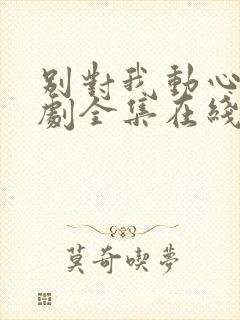 別對我動心
劇全集在綫
莫奇喫夢